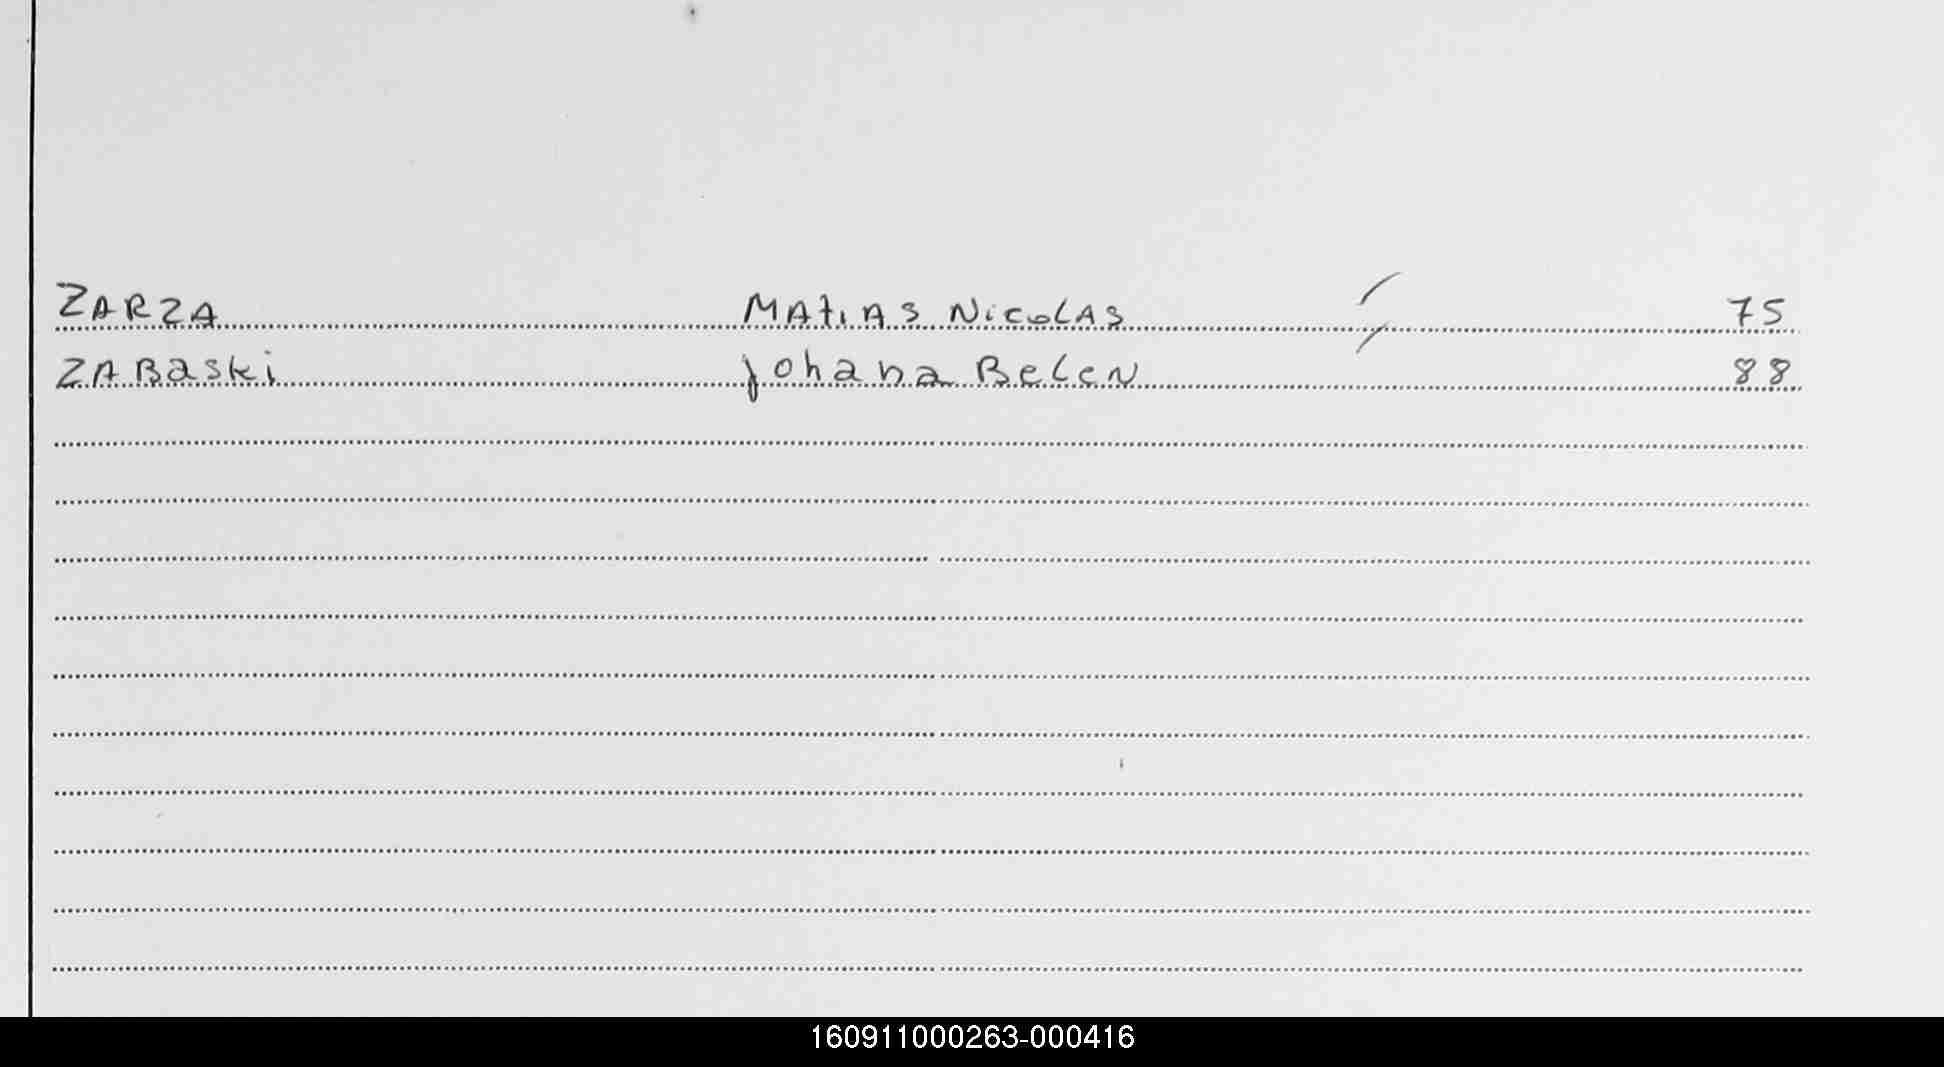 ZARZA Matias Nicolas 75
ZABaski Johana Belen 88
160911000263-000416